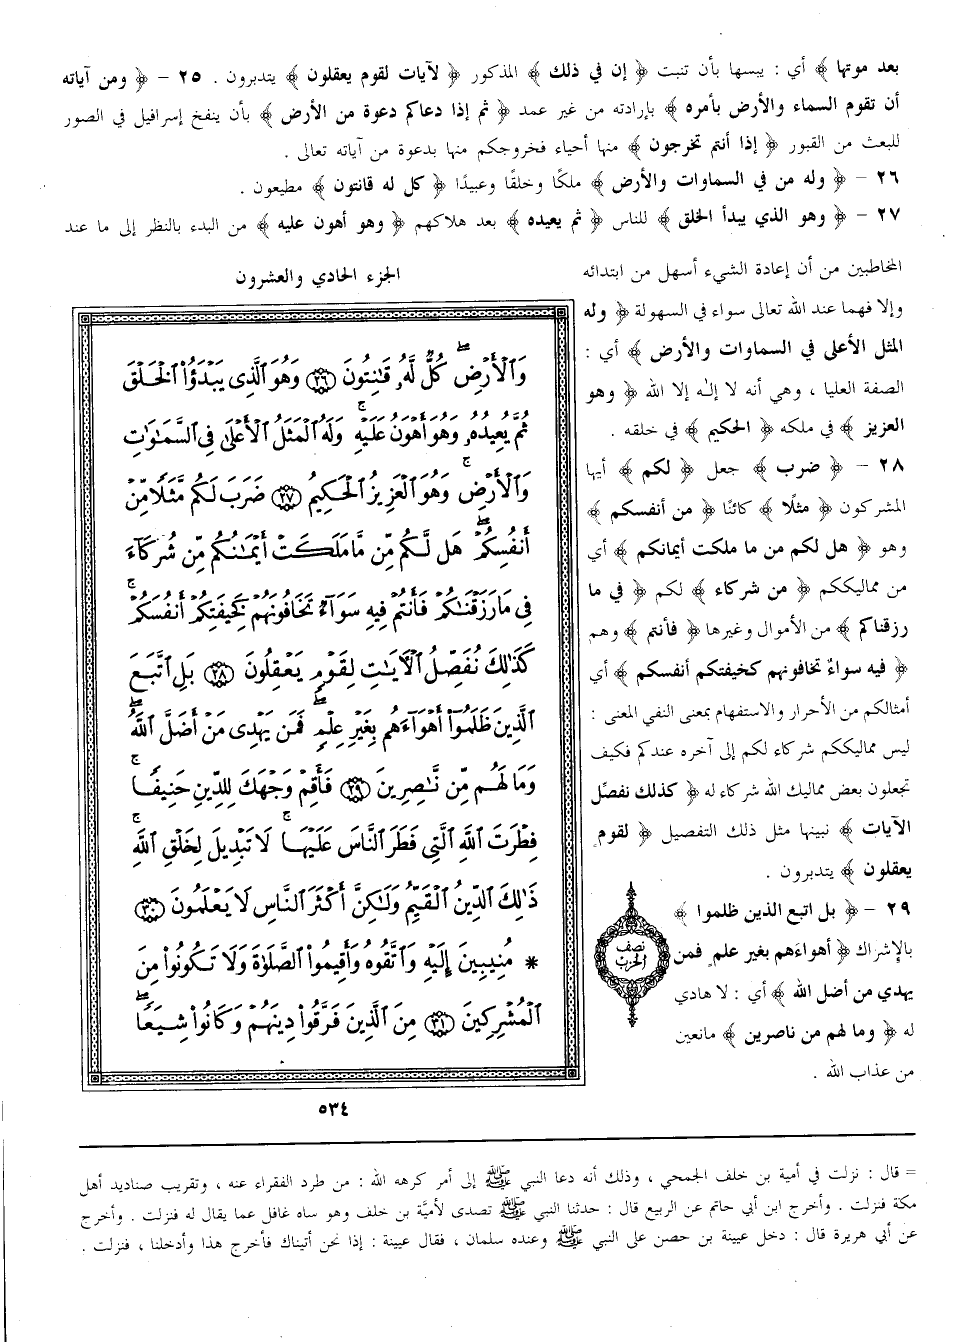 بعد موتها ﴾ أي : يبسها بأن تنبت ﴿ إن في ذلك ﴾ المذكور ﴿ لآيات لقوم يعقلون ﴾ يتدبرون . ٢٥ – ﴿ ومن آياته
أن تقوم السماء والأرض بأمره ﴾ بإرادته من غير عمد ﴿ ثم إذا دعاكم دعوة من الأرض ﴾ بأن ينفخ إسرافيل في الصور
للبعث من القبور ﴿ إذا أنتم تخرجون ﴾ منها أحياء فخروجكم منها بدعوة من آياته تعالى .
٢٦ – ﴿ وله من في السماوات والأرض ﴾ ملكًا وخلقًا وعبيدًا ﴿ كل له قانتون ﴾ مطيعون .
٢٧ – ﴿ وهو الذي يبدأ الخلق ﴾ للناس ﴿ ثم يعيده ﴾ بعد هلاكهم ﴿ وهو أهون عليه ﴾ من البدء بالنظر إلى ما عند
المخاطبين من أن إعادة الشيء أسهل من ابتدائه
وإلا فهما عند الله تعالى سواء في السهولة ﴿ وله
المثل الأعلى في السماوات والأرض ﴾ أي :
الصفة العليا ، وهي أنه لا إلـٰه إلا الله ﴿ وهو
العزيز ﴾ في ملكه ﴿ الحكيم ﴾ في خلقه .
٢٨ – ﴿ ضرب ﴾ جعل ﴿ لكم ﴾ أيها
المشركون ﴿ مثلًا ﴾ كائنًا ﴿ من أنفسكم ﴾
وهو ﴿ هل لكم من ما ملكت أيمانكم ﴾ أي
من مماليككم ﴿ من شركاء ﴾ لكم ﴿ في ما
رزقناكم ﴾ من الأموال وغيرها ﴿ فأنتم ﴾ وهم
﴿ فيه سواءٌ تخافونهم كخيفتكم أنفسكم ﴾ أي
أمثالكم من الأحرار والاستفهام بمعنى النفي المعنى :
ليس مماليككم شركاء لكم إلى آخره عندكم فكيف
تجعلون بعض مماليك الله شركاء له ﴿ كذلك نفصّل
الآيات ﴾ نبينها مثل ذلك التفصيل ﴿ لقوم
يعقلون ﴾ يتدبرون .
٢٩ – ﴿ بل اتبع الذين ظلموا ﴾
بالإشراك ﴿ أهواءَهم بغير علم فمن
يهدي من أضل الله ﴾ أي : لا هادي
له ﴿ وما لهم من ناصرين ﴾ مانعين
من عذاب الله .
نصف
الحزب
الجزء الحادي والعشرون
وَٱلْأَرْضِ ۖ كُلٌّ لَّهُۥ قَـٰنِتُونَ ۝٢٦ وَهُوَ ٱلَّذِى يَبْدَؤُا۟ ٱلْخَلْقَ
ثُمَّ يُعِيدُهُۥ وَهُوَ أَهْوَنُ عَلَيْهِ ۚ وَلَهُ ٱلْمَثَلُ ٱلْأَعْلَىٰ فِى ٱلسَّمَـٰوَٰتِ
وَٱلْأَرْضِ ۚ وَهُوَ ٱلْعَزِيزُ ٱلْحَكِيمُ ۝٢٧ ضَرَبَ لَكُم مَّثَلًا مِّنْ
أَنفُسِكُمْ ۖ هَل لَّكُم مِّن مَّا مَلَكَتْ أَيْمَـٰنُكُم مِّن شُرَكَآءَ
فِى مَا رَزَقْنَـٰكُمْ فَأَنتُمْ فِيهِ سَوَآءٌ تَخَافُونَهُمْ كَخِيفَتِكُمْ أَنفُسَكُمْ ۚ
كَذَٰلِكَ نُفَصِّلُ ٱلْـَٔايَـٰتِ لِقَوْمٍ يَعْقِلُونَ ۝٢٨ بَلِ ٱتَّبَعَ
ٱلَّذِينَ ظَلَمُوٓا۟ أَهْوَآءَهُم بِغَيْرِ عِلْمٍ ۖ فَمَن يَهْدِى مَنْ أَضَلَّ ٱللَّهُ ۖ
وَمَا لَهُم مِّن نَّـٰصِرِينَ ۝٢٩ فَأَقِمْ وَجْهَكَ لِلدِّينِ حَنِيفًا ۚ
فِطْرَتَ ٱللَّهِ ٱلَّتِى فَطَرَ ٱلنَّاسَ عَلَيْهَا ۚ لَا تَبْدِيلَ لِخَلْقِ ٱللَّهِ ۚ
ذَٰلِكَ ٱلدِّينُ ٱلْقَيِّمُ وَلَـٰكِنَّ أَكْثَرَ ٱلنَّاسِ لَا يَعْلَمُونَ ۝٣٠
* مُنِيبِينَ إِلَيْهِ وَٱتَّقُوهُ وَأَقِيمُوا۟ ٱلصَّلَوٰةَ وَلَا تَكُونُوا۟ مِنَ
ٱلْمُشْرِكِينَ ۝٣١ مِنَ ٱلَّذِينَ فَرَّقُوا۟ دِينَهُمْ وَكَانُوا۟ شِيَعًا ۖ
٥٣٤
= قال : نزلت في أمية بن خلف الجمحي ، وذلك أنه دعا النبي ﷺ إلى أمر كرهه الله : من طرد الفقراء عنه ، وتقريب صناديد أهل
مكة فنزلت . وأخرج ابن أبي حاتم عن الربيع قال : حدثنا النبي ﷺ تصدى لأميَّة بن خلف وهو ساه غافل عما يقال له فنزلت . وأخرج
عن أبي هريرة قال : دخل عيينة بن حصن على النبي ﷺ وعنده سلمان ، فقال عيينة : إذا نحن أتيناك فأخرج هذا وأدخلنا ، فنزلت .